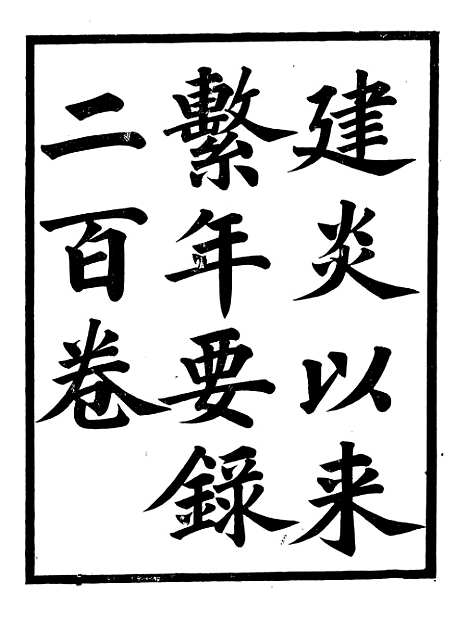 建炎以来
繫年要録
二百卷